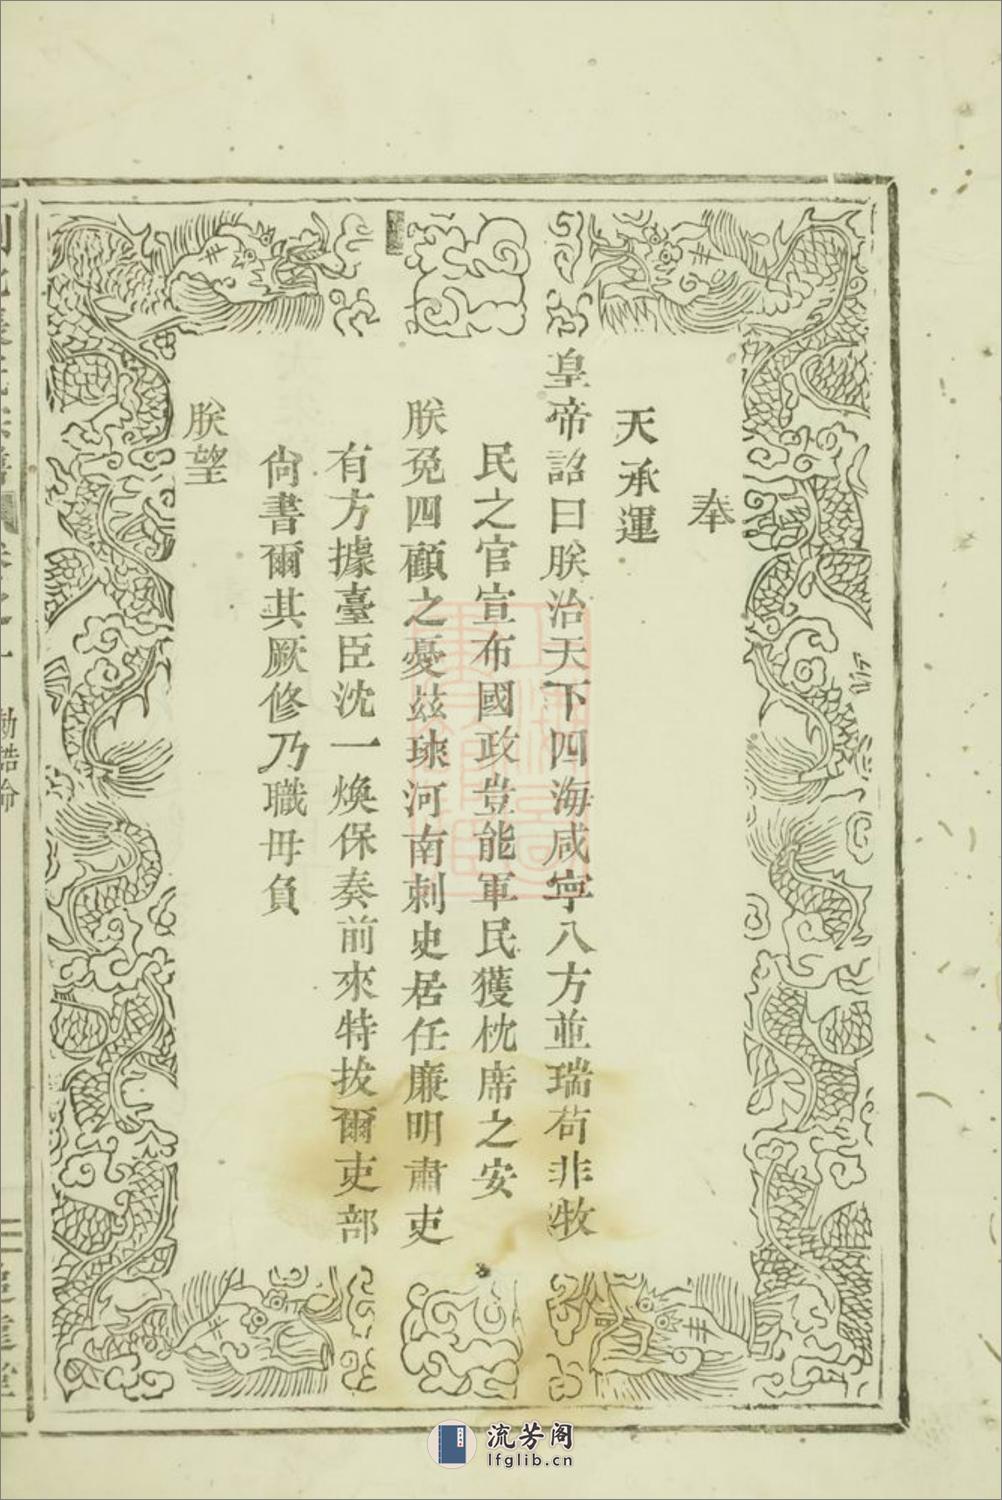 奉
天承運
皇帝詔曰朕治天下四海咸寧八方並瑞苟非牧
民之官宣布國政豈能軍民獲枕席之安
朕免四顧之憂茲琜河南刺史居任廉明肅吏
有方據臺臣沈一煥保奏前來特拔爾吏部
尙書爾其厥修乃職毋負
朕望
卷之一
勅誥命
二
流芳阁
lfglib.cn